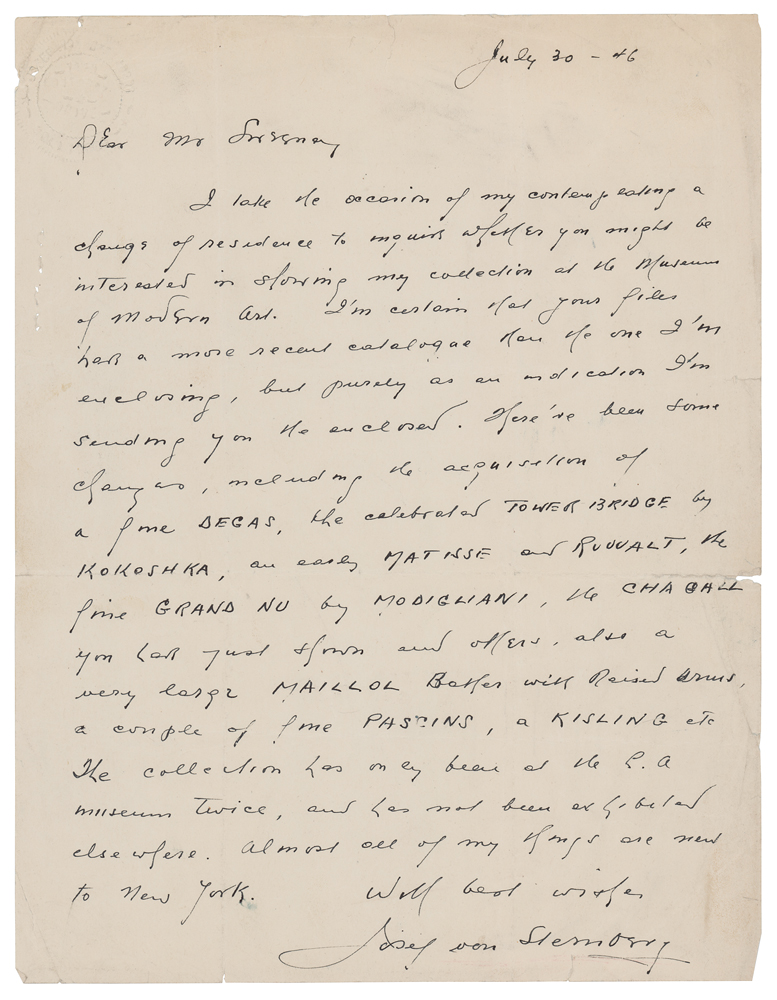 July 30 - 46
Dear Mr Sweeney
I take the occasion of my contemplating a
change of residence to inquire whether you might be
interested in showing my collection at the Museum
of Modern Art. I'm certain that your files
have a more recent catalogue than the one I'm
enclosing, but purely as an indication I'm
sending you the enclosed. There've been some
changes, including the acquisition of
a fine DEGAS, the celebrated TOWER BRIDGE by
KOKOSHKA, an early MATISSE and RUOUALT, the
fine GRAND NU by MODIGLIANI, the CHAGALL
you have just shown and others, also a
very large MAILLOL Bather with Raised Arms,
a couple of fine PASCINS, a KISLING etc
The collection has only been at the L.A
museum twice, and has not been exhibited
elsewhere. Almost all of my things are new
to New York. With best wishes
Josef von Sternberg